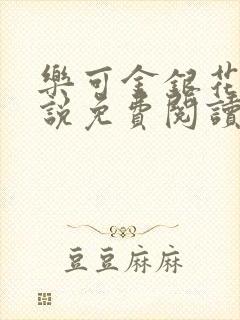 樂可金銀花
說免費閱讀
豆豆麻麻